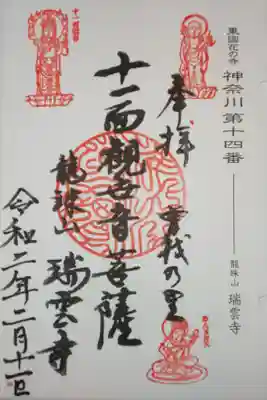 東国花の寺
神奈川 第十四番
龍珠山 瑞雲寺
奉拝 曽我の里
十一面観世音菩薩
龍珠山 瑞雲寺
令和二年二月十一日